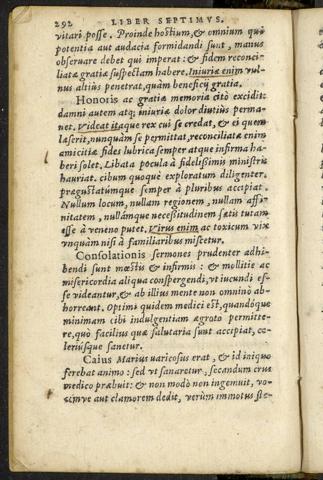 292 LIBER SEPTIMVS.
vitari posse. Proinde hostium, & omnium quorũ
potentia aut audacia formidandi sunt, manus
obseruare debet qui imperat: & fidem reconci-
liatæ gratiæ suspectam habere. Iniuriæ enim vul-
nus altiùs penetrat, quàm beneficij gratia.
Honoris ac gratiæ memoria citò excidit:
damni autem atq; iniuriæ dolor diutiùs perma-
net. Videat itaque rex cui se credat, & ei quem
læserit, nunquàm se permittat, reconciliatæ enim
amicitiæ fides lubrica semper atque infirma ha-
beri solet. Libata pocula à fidelißimis ministris
hauriat. cibum quoquè exploratum diligenter,
prægustatúmque semper à pluribus accipiat.
Nullum locum, nullam regionem, nullam affi-
nitatem, nullámque necessitudinem satis tutam
esse à veneno putet. Virus enim ac toxicum vix
vnquàm nisi à familiaribus miscetur.
Consolationis sermones prudenter adhi-
bendi sunt mæstis & infirmis: & mollitie ac
misericordia aliqua conspergendi, vt iucundi es-
se videantur, & ab illius mente non omninò ab-
horreant. Optimi quidem medici est, quandóque
minimam cibi indulgentiam ægroto permitte-
re, quò faciliùs quæ salutaria sunt accipiat, ce-
leriúsque sanetur.
Caius Marius varicosus erat, & id iniquo
ferebat animo: sed vt sanaretur, secandum crus
medico præbuit: & non modò non ingemuit, vo-
cémve aut clamorem dedit, verùm immotus ste-